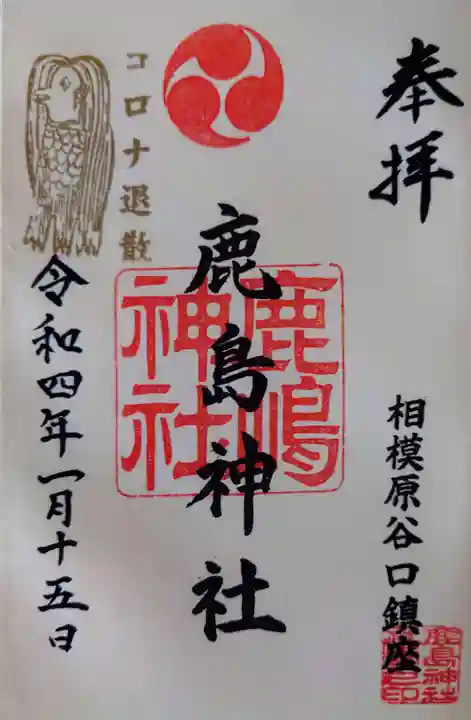 奉拝
相模原谷口鎮座
鹿島神社
鹿嶋
神社
コロナ退散
令和四年一月十五日
鹿島神社